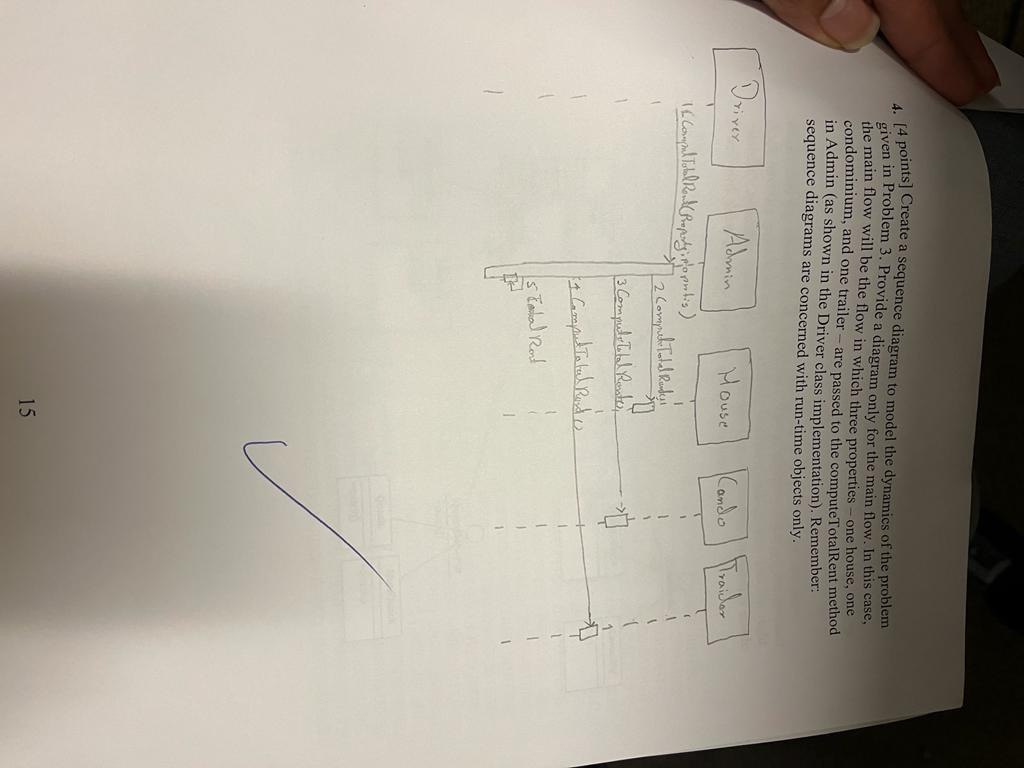 4. [4 points] Create a sequence diagram to model the dynamics of the problem
given in Problem 3. Provide a diagram only for the main flow. In this case,
the main flow will be the flow in which three properties – one house, one
condominium, and one trailer – are passed to the computeTotalRent method
in Admin (as shown in the Driver class implementation). Remember:
sequence diagrams are concerned with run-time objects only.
Driver
Admin
House
Condo
Trailor
2 ComputeTotalRent()
3 ComputeTotalRent()
4 ComputTotalRent()
5
15